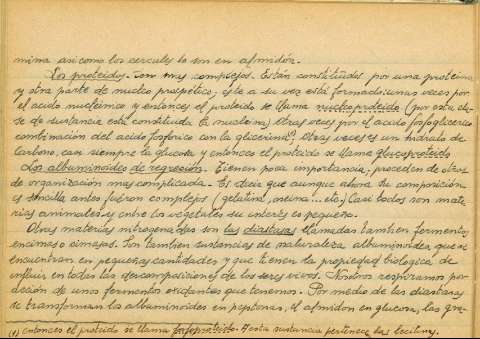 mina asi como los cereales lo son en almidón.
Los proteidos. Son muy complejos. Están constituidos por una proteina
y otra parte de nucleo prospético, éste a su vez está formado: unas veces por
el acido nucleínico y entonces el proteido se llama nucleoproteido (por esta cla-
se de sustancia está constituida la nucleina) Otras veces por el acido fosfoglicerico
combinación del acido fosforico con la glicerina(1) Otras veces es un hidrato de
carbono, casi siempre la glucosa y entonces el proteido se llama glucoproteido
Los albuminoides de regresión. Tienen poca importancia, proceden de otros
de organización mas complicada. Es decir que aunque ahora su composición
es sencilla antes fueron complejos (gelatina, oseina... etc.) Casi todos son mate-
rias animales y entre los vegetales su interés es pequeño.
Otras materias nitrogenadas son las diastasas llamadas tambien fermentos,
encimas o cimasas. Son tambien sustancias de naturaleza albuminoidea que se
encuentran en pequeñas cantidades y que tienen la propiedad biologica de
influir en todas las descomposiciones de los seres vivos. Nosotros respiramos por
acción de unos fermentos oxidantes que tenemos. Por medio de las diastasas
se transforman los albuminoides en peptonas, el almidon en glucosa, las gra-
(1) entonces el proteido se llama fosfoproteido. A esta sustancia pertenece las lecitinas.